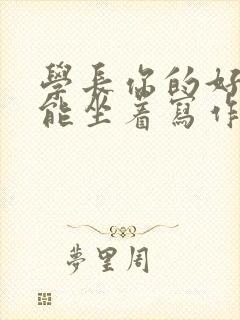 學長你的好
能坐着寫作
夢里周